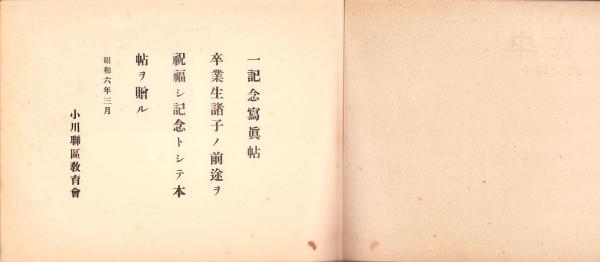 一記念寫眞帖
卒業生諸子ノ前途ヲ
祝福シ記念トシテ本
帖ヲ贈ル
昭和六年三月
小川聯區敎育會